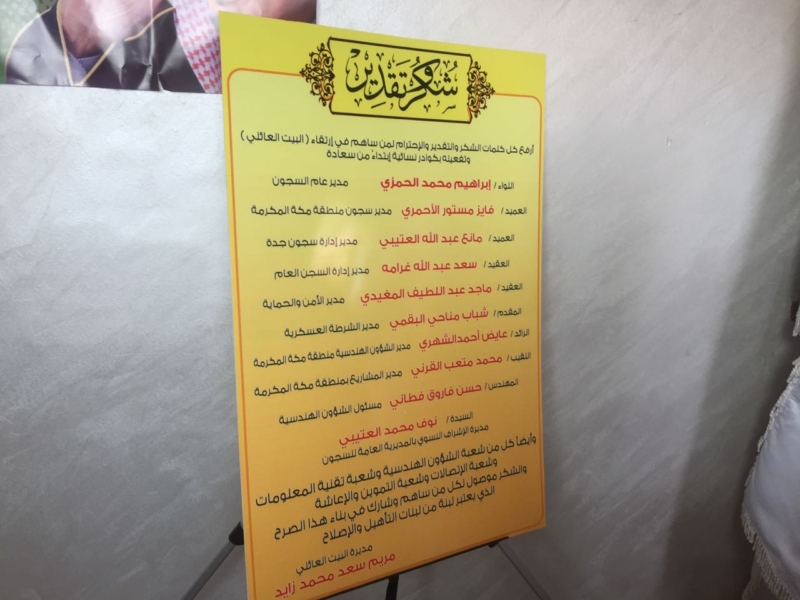 شكر وتقدير
أرفع كل كلمات الشكر والتقدير والإحترام لمن ساهم في إرتقاء ( البيت العائلي )
وتفعيله بكوادر نسائية إبتداءً من سعادة
اللواء / إبراهيم محمد الحمزي مدير عام السجون
العميد / فايز مستور الأحمري مدير سجون منطقة مكة المكرمة
العميد / مانع عبد الله العتيبي مدير إدارة سجون جدة
العقيد / سعد عبد الله غرامه مدير إدارة السجن العام
العقيد / ماجد عبد اللطيف المغيدي مدير الأمن والحماية
المقدم / شباب مناحي البقمي مدير الشرطة العسكرية
الرائد / عايض أحمد الشهري مدير الشؤون الهندسية منطقة مكة المكرمة
النقيب / محمد متعب القرني مدير المشاريع بمنطقة مكة المكرمة
المهندس / حسن فاروق فطاني مسئول الشؤون الهندسية
السيدة / نوف محمد العتيبي
مديرة الإشراف النسوي بالمديرية العامة للسجون
وأيضاً كل من شعبة الشؤون الهندسية وشعبة تقنية المعلومات
وشعبة الإتصالات وشعبة التموين والإعاشة
والشكر موصول لكل من ساهم وشارك في بناء هذا الصرح
الذي يعتبر لبنة من لبنات التأهيل والإصلاح
مديرة البيت العائلي
مريم سعد محمد زايد